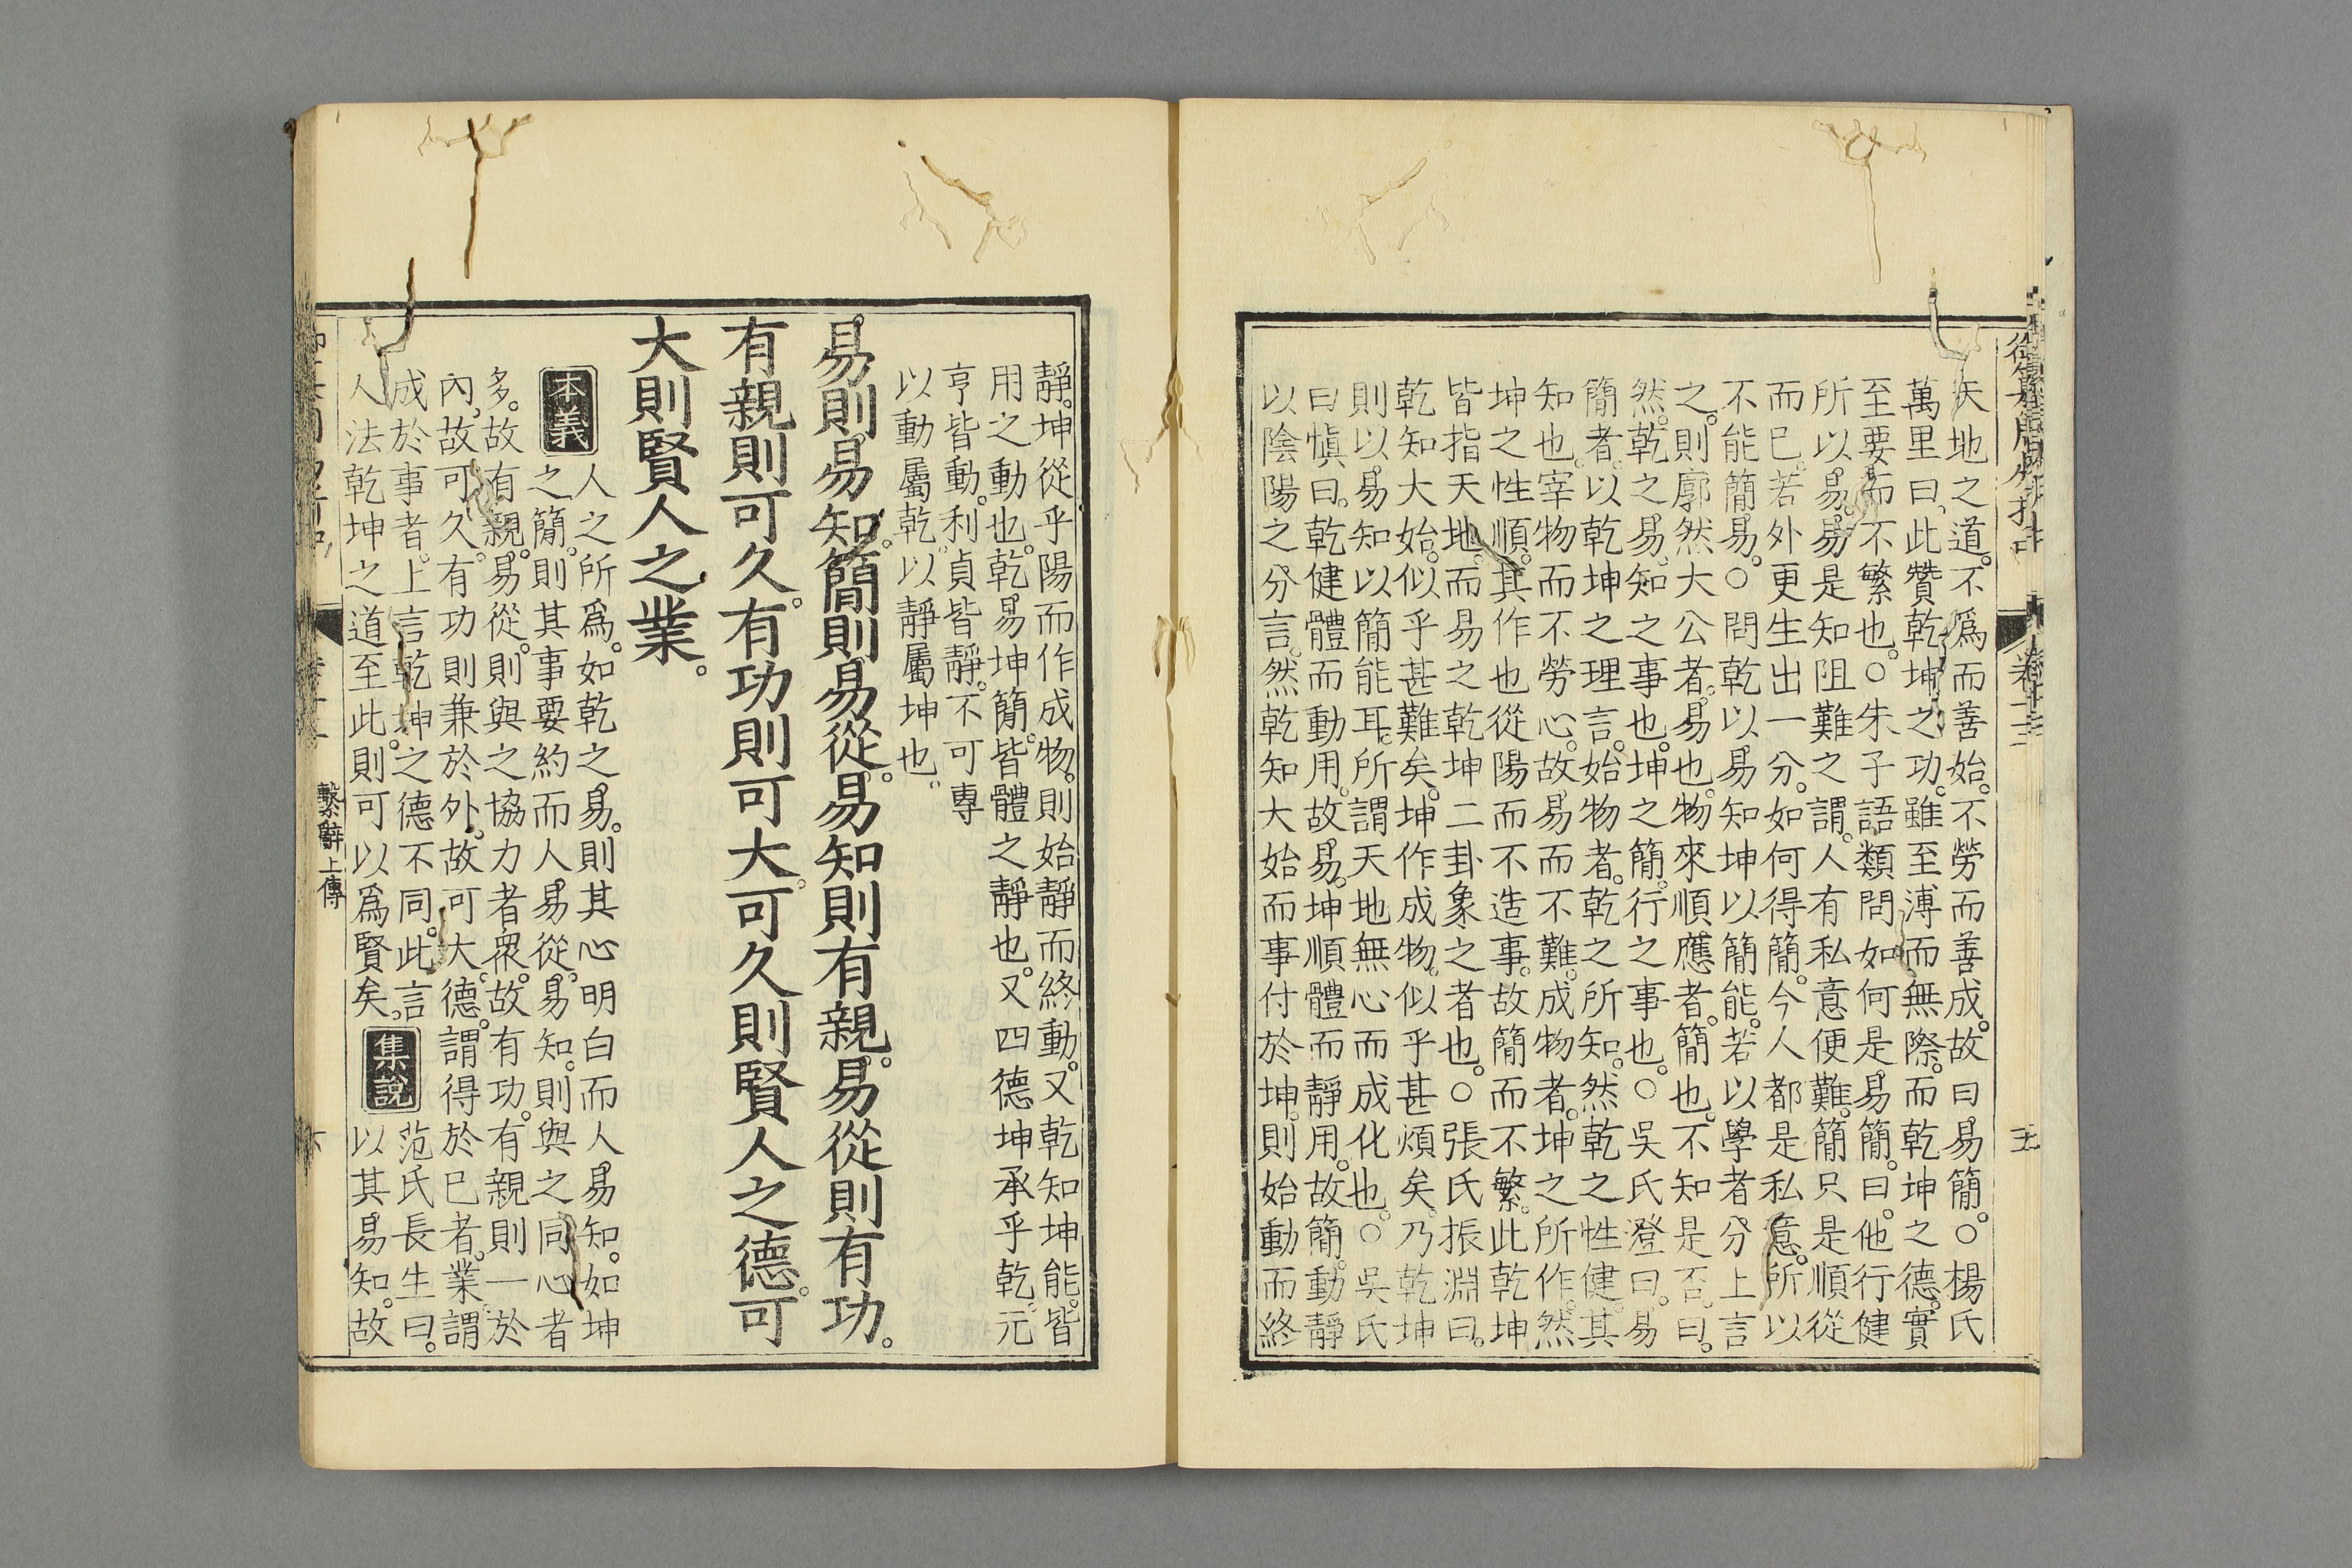 天地之道。不爲而善始。不勞而善成。故曰易簡。○楊氏
萬里曰。此贊乾坤之功。雖至溥而無際。而乾坤之德。實
至要而不繁也。○朱子語類問如何是易簡。曰。他行健
所以易。易是知阻難之謂。人有私意便難。簡只是順從
而已。若外更生出一分。如何得簡。今人都是私意。所以
不能簡易。○問乾以易知坤以簡能。若以學者分上言
之。則廓然大公者。易也。物來順應者。簡也。不知是否。曰。
然。乾之易。知之事也。坤之簡。行之事也。○吳氏澄曰。易
簡者。以乾坤之理言。始物者。乾之所知。然乾之性健。其
知也。宰物而不勞心。故易而不難。成物者。坤之所作。然
坤之性順。其作也從陽而不造事。故簡而不繁。此乾坤
皆指天地。而易之乾坤二卦象之者也。○張氏振淵曰。
乾知大始。似乎甚難矣。坤作成物。似乎甚煩矣。乃乾坤
則以易知以簡能耳。所謂天地無心而成化也。○吳氏
曰愼曰。乾健體而動用。故易。坤順體而靜用。故簡。動靜
以陰陽之分言。然乾知大始而事付於坤。則始動而終
靜。坤從乎陽而作成物。則始靜而終動。又乾知坤能。皆
用之動也。乾易坤簡。皆體之靜也。又四德坤承乎乾。元
亨皆動。利貞皆靜。不可專
以動屬乾。以靜屬坤也。
易則易知。簡則易從。易知則有親。易從則有功。
有親則可久。有功則可大。可久則賢人之德。可
大則賢人之業。
本義
人之所爲。如乾之易。則其心明白而人易知。如坤
之簡。則其事要約而人易從。易知。則與之同心者
多。故有親。易從。則與之協力者衆。故有功。有親則一於
內。故可久。有功則兼於外。故可大。德。謂得於已者。業。謂
成於事者。上言乾坤之德不同。此言
人法乾坤之道至此。則可以爲賢矣。
集說
范氏長生曰。
以其易知。故
繫辭上傳